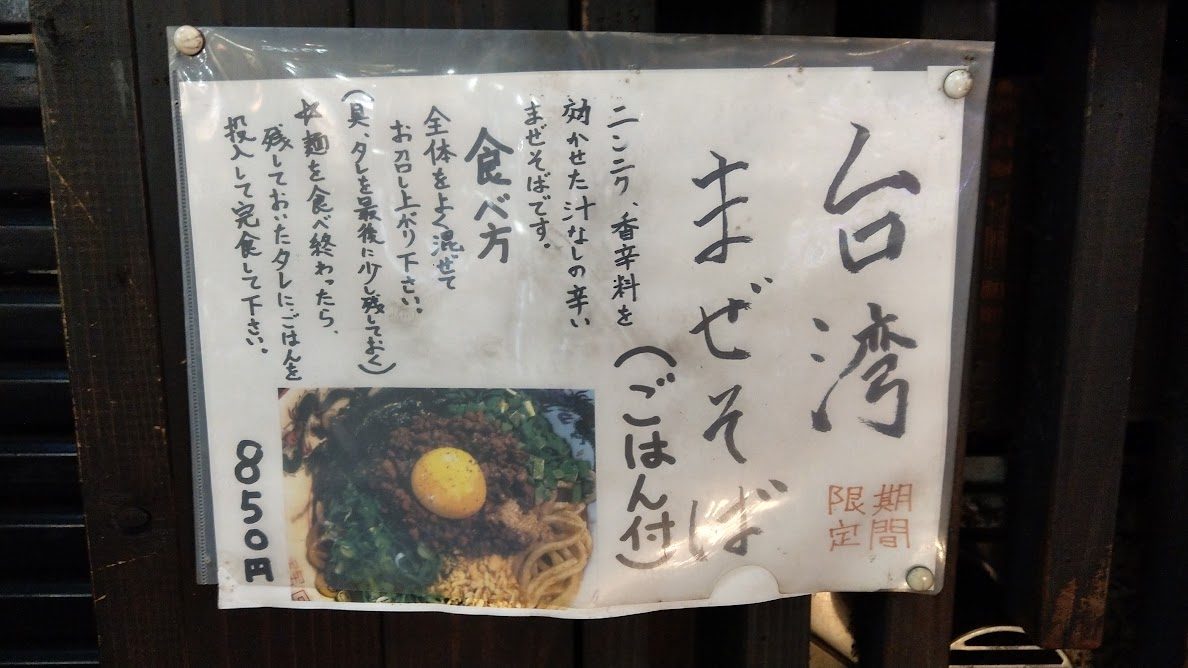 台湾
期間
限定
まぜそば
(ごはん付)
ニンニク、香辛料を
効かせた汁なしの辛い
まぜそばです。
食べ方
全体をよく混ぜて
お召し上がり下さい。
(具、タレを最後に少し残しておく)
麺を食べ終わったら、
残しておいたタレにごはんを
投入して完食して下さい。
850円